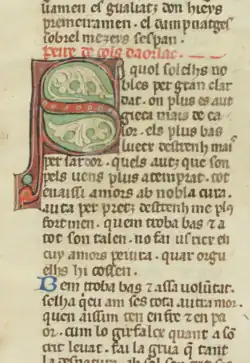 uamen el gualiatz don hieys
premeiramen. el dampnatges
sobriel mezeys se span.
Peire de cols daorlac.
Si quol solelhs no
bles per gran clar
dat. on plus es aut
gieta mais de ca
lor. els plus bas
luecx destrenh mai
per sazor. quels autz que son
pels uens plus atemprat. tot
enaissi amors ab nobla cura.
auta per pretz destrenh me plus
fortmen. quem troba bas e a
tot son talen. no fai us ric en
cuy amors peiura. quar orgu
elhs hi cossen.
Bem troba bas e assa uoluntat.
selha qeu am ses tota autra mor.
quen aissim ten en fre e en pa
or. cum lo girfalcx quant a so
crit leuat. fai la grua qu tant